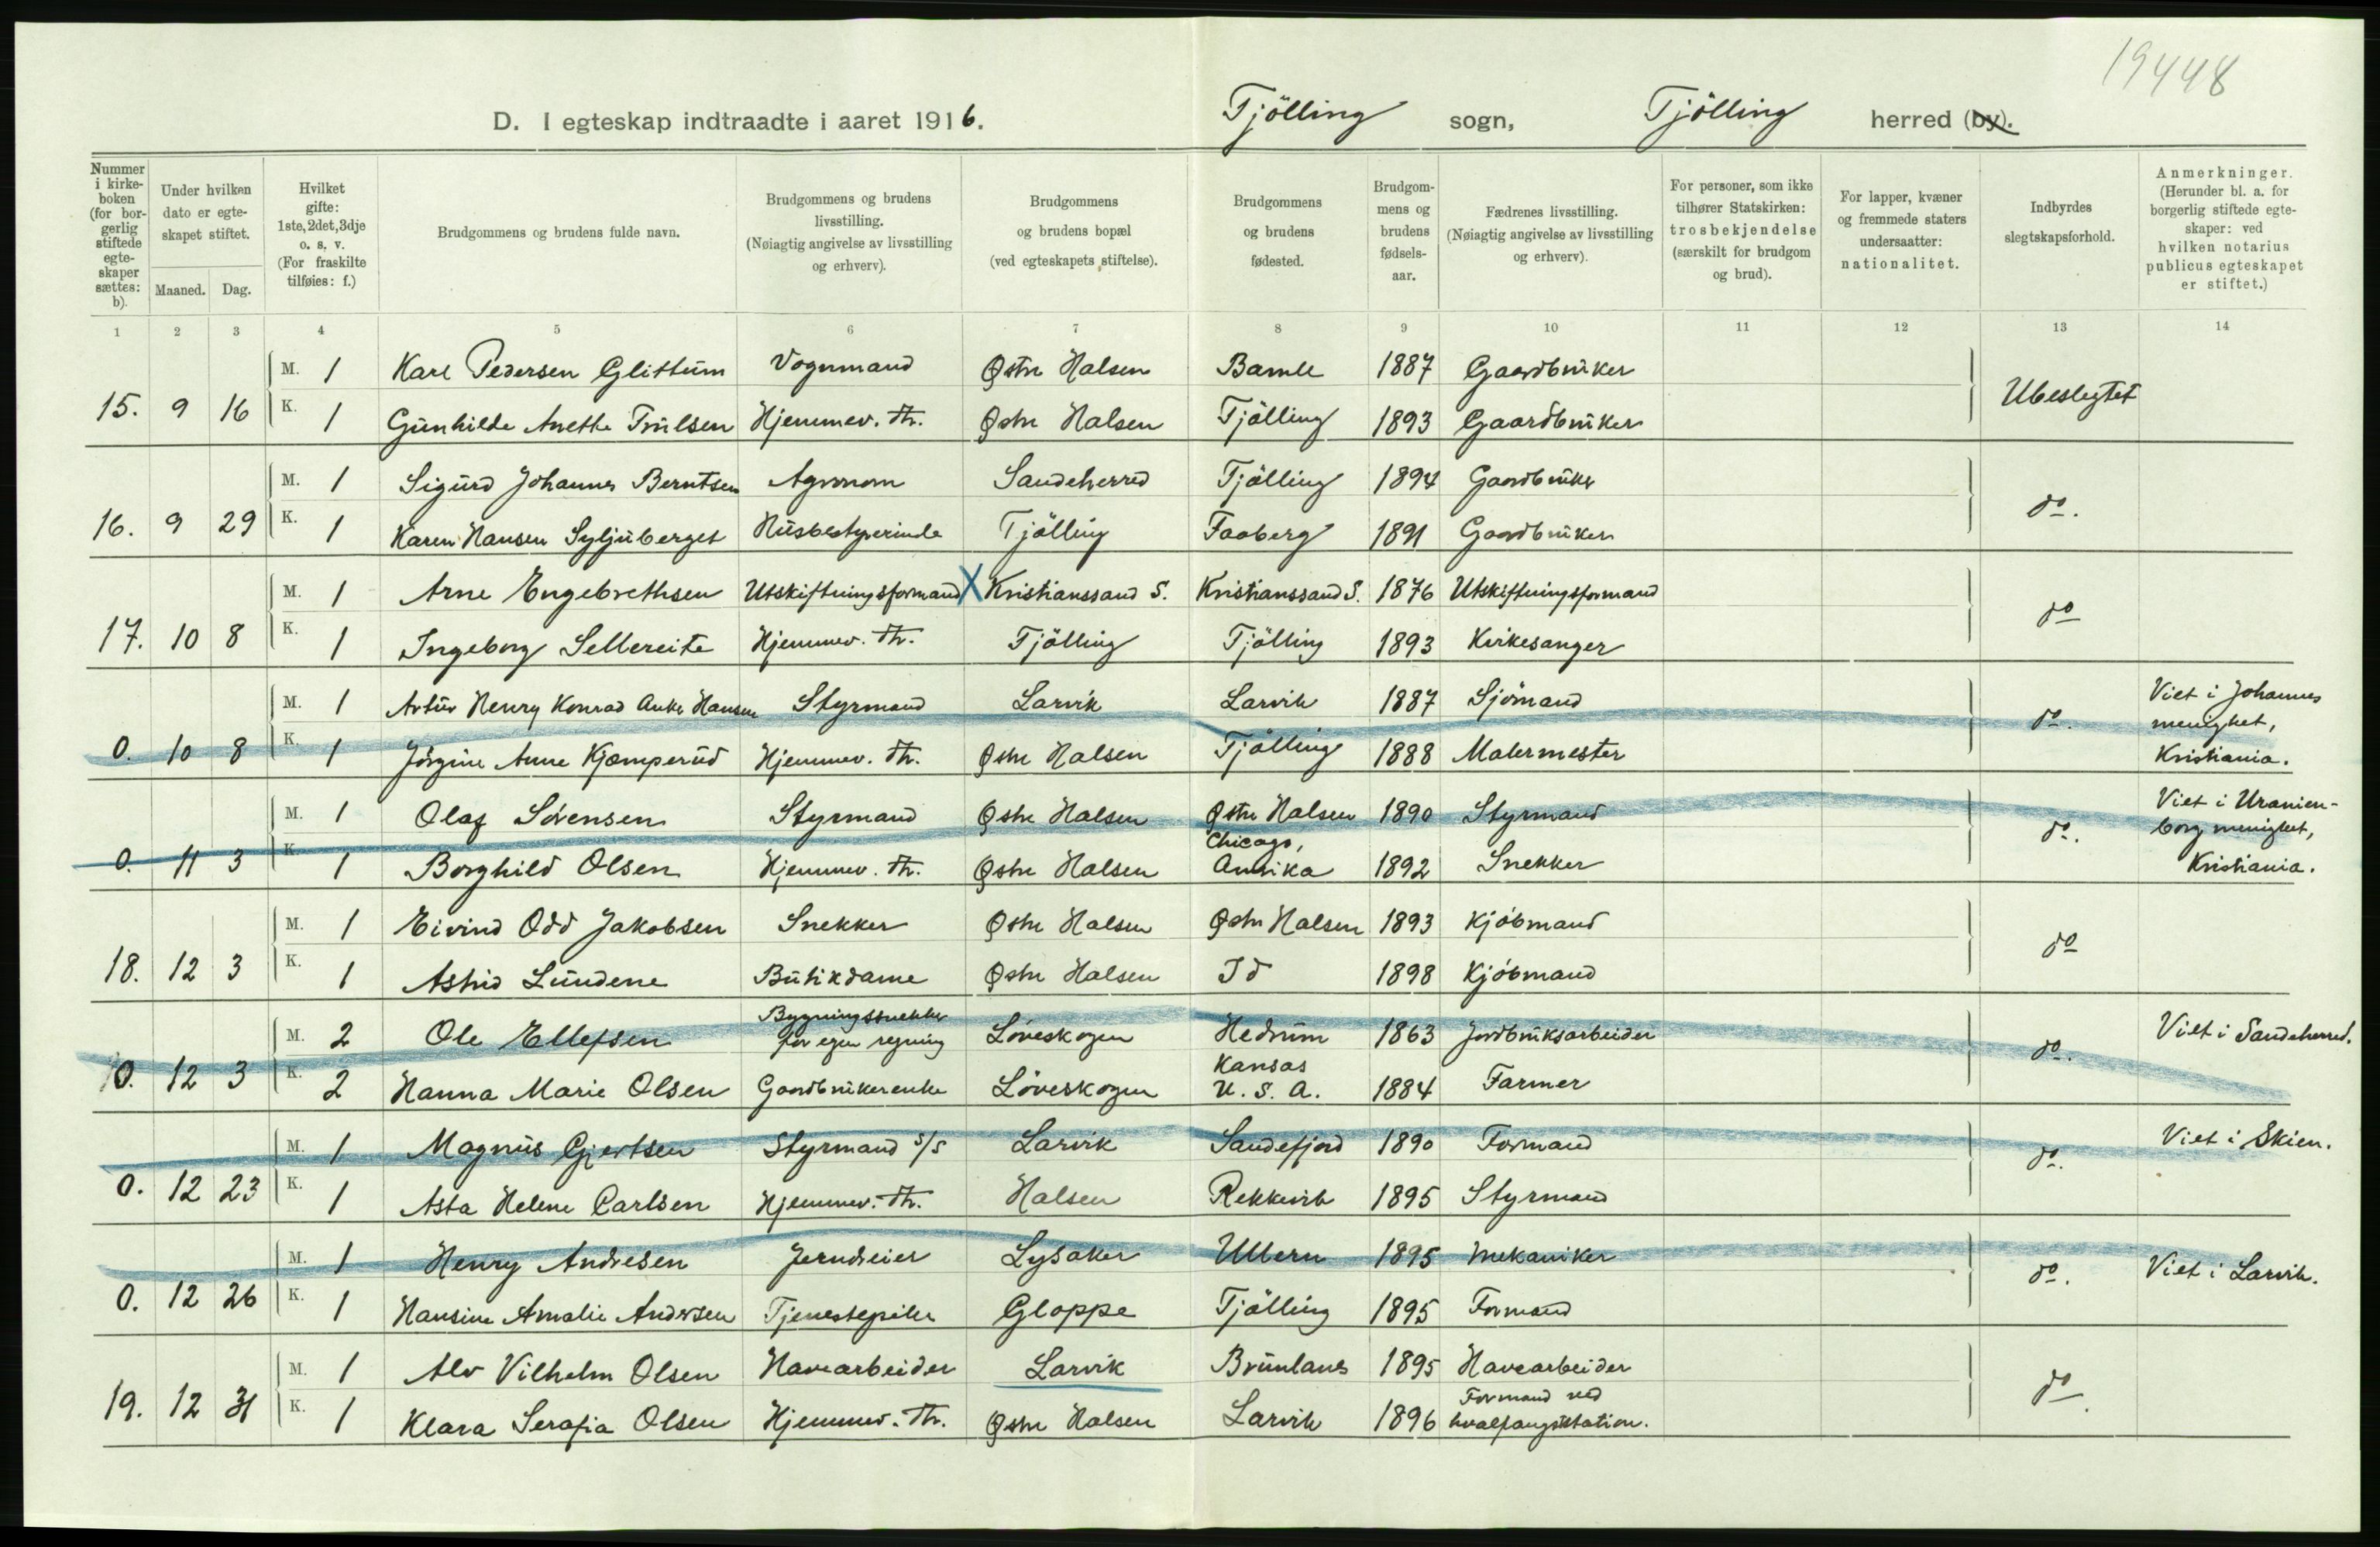 19448
D. I egteskap indtraadte i aaret 1916. Tjölling sogn, Tjölling herred (by).
Nummer i kirkeboken (for borgerlig stiftede egteskaper sættes: b).
Under hvilken dato er egteskapet stiftet.
Maaned. Dag.
Hvilket gifte: 1ste, 2det, 3dje o. s. v. (For fraskilte tilføies: f.)
Brudgommens og brudens fulde navn.
Brudgommens og brudens livsstilling. (Nøiagtig angivelse av livsstilling og erhverv).
Brudgommens og brudens bopæl (ved egteskapets stiftelse).
Brudgommens og brudens fødested.
Brudgommens og brudens fødselsaar.
Fædrenes livsstilling. (Nøiagtig angivelse av livsstilling og erhverv).
For personer, som ikke tilhører Statskirken: trosbekjendelse (særskilt for brudgom og brud).
For lapper, kvæner og fremmede staters undersaatter: nationalitet.
Indbyrdes slegtskapsforhold.
Anmerkninger. (Herunder bl. a. for borgerlig stiftede egteskaper: ved hvilken notarius publicus egteskapet er stiftet.)
1 2 3 4 5 6 7 8 9 10 11 12 13 14
M. 1 Karl Pedersen Glittum Vognmand Østre Halsen Bamle 1887 Gaardbruker
15. 9 16 K. 1 Gunhilde Anethe Trulsen Hjemmev. dtr. Østre Halsen Tjölling 1893 Gaardbruker Ubeslegtet
M. 1 Sigurd Johannes Berntsen Agronom Sandeherred Tjölling 1894 Gaardbruker
16. 9 29 K. 1 Karen Hansen Syljuberget Husbestyrerinde Tjölling Faaberg 1891 Gaardbruker do.
M. 1 Arne Engebrethsen Utskiftningsformand X Kristianssand S. Kristianssand S. 1876 Utskiftningsformand
17. 10 8 K. 1 Ingeborg Sellereite Hjemmev. dtr. Tjölling Tjölling 1893 Kirkesanger do
M. 1 Artur Henry Konrad Anker Hansen Styrmand Larvik Larvik 1887 Sjömand
0. 10 8 K. 1 Jörgine Anne Kjæmperud Hjemmev. dtr. Østre Halsen Tjölling 1888 Malermester do. Viet i Johannes menighet, Kristiania.
M. 1 Olaf Sörensen Styrmand Østre Halsen Østre Halsen 1890 Styrmand
0. 11 3 K. 1 Borghild Olsen Hjemmev. dtr. Østre Halsen Chicago, Amerika 1892 Snekker do. Viet i Uranienborg menighet, Kristiania.
M. 1 Eivind Odd Jakobsen Snekker Østre Halsen Østre Halsen 1893 Kjöbmand
18. 12 3 K. 1 Astrid Lundene Butikdame Østre Halsen Id 1898 Kjöbmand do
M. 2 Ole Ellefsen Bygningssnekker for egen regning Löveskogen Hedrum 1863 Jordbruksarbeider
0. 12 3 K. 2 Hanna Marie Olsen Gaardbrukerenke Löveskogen Kansas U. S. A. 1884 Farmer do. Viet i Sandeherred.
M. 1 Magnus Gjertsen Styrmand S/S Larvik Sandefjord 1890 Formand
0. 12 23 K. 1 Asta Helene Carlsen Hjemmev. dtr. Halsen Rekkevik 1895 Styrmand do. Viet i Skien.
M. 1 Henry Andresen Jerndreier Lysaker Ullern 1895 Mekaniker
0. 12 26 K. 1 Hansine Amalie Andersen Tjenestepike Gloppe Tjölling 1895 Formand do. Viet i Larvik.
M. 1 Alv Vilhelm Olsen Havearbeider Larvik Brunlanes 1895 Havearbeider
19. 12 31 K. 1 Klara Serafia Olsen Hjemmev. dtr. Østre Halsen Larvik 1896 Formand ved hvalfangststation. do.